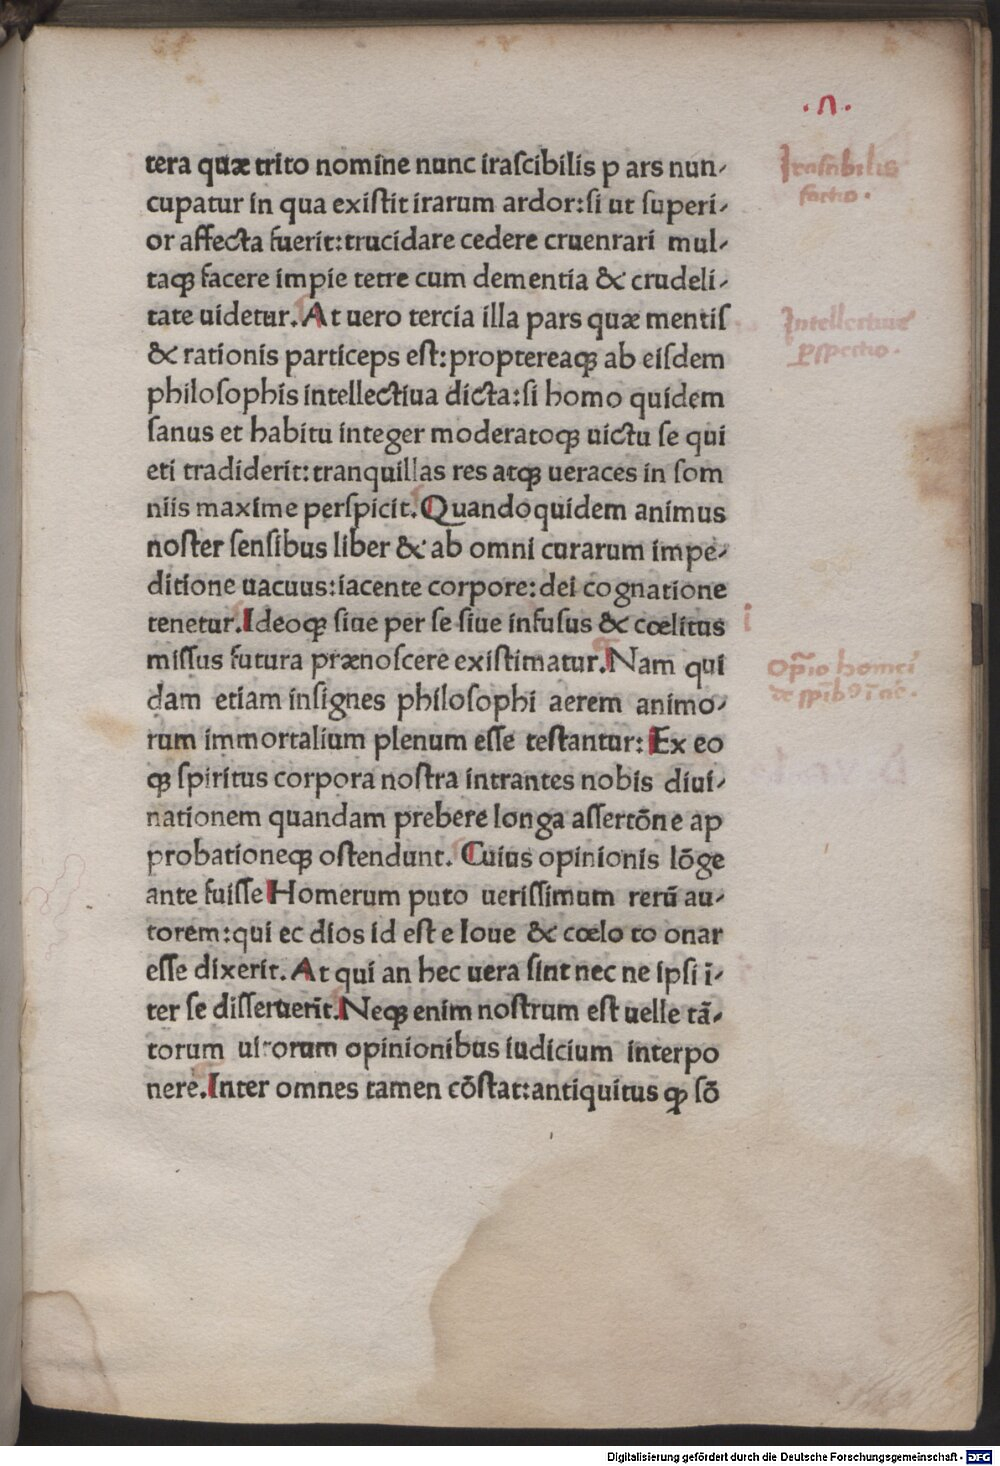 .n.
tera quæ trito nomine nunc iraſcibilis p ars nun⸗
cupatur in qua exiſtit irarum ardor:ſi ut ſuperi⸗
or affecta fuerit:trucidare cedere cruenrari mul⸗
taqꝫ facere impie tetre cum dementia & crudeli⸗
tate uidetur. At uero tercia illa pars quæ mentiſ
& rationis particeps eſt:proptereaqꝫ ab eiſdem
philoſophis intellectiua dicta:ſi homo quidem
ſanus et habitu integer moderatoqꝫ uictu ſe qui
eti tradiderit:tranquillas res atqꝫ ueraces in ſom
niis maxime perſpicit. Quandoquidem animus
noſter ſenſibus liber & ab omni curarum impe⸗
ditione uacuus:iacente corpore:dei cognatione
tenetur. Ideoqꝫ ſiue per ſe ſiue infuſus & cœlitus
miſſus futura prænoſcere exiſtimatur. Nam qui
dam etiam inſignes philoſophi aerem animo⸗
rum immortalium plenum eſſe teſtantur: Ex eo
qꝫ ſpiritus corpora noſtra intrantes nobis diui⸗
nationem quandam prebere longa aſſertōne ap
probationeqꝫ oſtendunt. Cuius opinionis lōge
ante fuiſſe Homerum puto ueriſſimum rerū au⸗
torem:qui ec dios id eſt e Ioue & cœlo to onar
eſſe dixerit. At qui an hec uera ſint nec ne ipſi ī⸗
ter ſe diſſeruerīt. Neqꝫ enim noſtrum eſt uelle tā⸗
torum uirorum opinionibus iudicium interpo
nere. Inter omnes tamen cōſtat:antiquitus qꝫ ſō
Iraſcibilis
Intellectiue
i
Digitalisierung gefördert durch die Deutsche Forschungsgemeinschaft - DFG